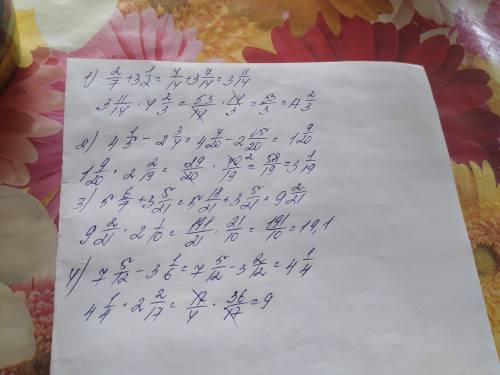 1) 2/7 + 3 1/2 = 4/14 + 3 7/14 = 3 11/14
3 11/14 · 4 2/3 = 53/14 · 14/3 = 53/3 = 17 2/3
2) 4 1/5 - 2 3/4 = 4 4/20 - 2 15/20 = 1 9/20
1 9/20 · 2 2/19 = 29/20 · 40 2/19 = 58/19 = 3 1/19
3) 5 6/7 + 3 5/21 = 5 18/21 + 3 5/21 = 9 2/21
9 2/21 · 2 1/10 = 191/21 · 21/10 = 191/10 = 19,1
4) 7 5/12 - 3 1/6 = 7 5/12 - 3 2/12 = 4 1/4
4 1/4 · 2 2/17 = 17/4 · 36/17 = 9